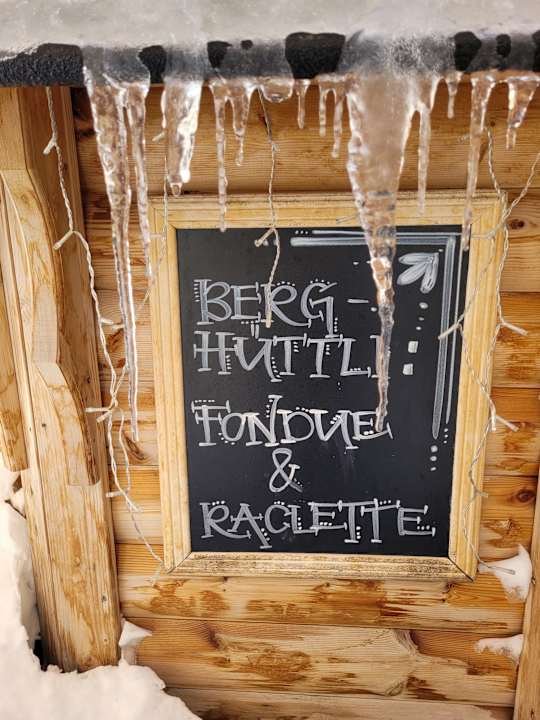 BERG-
HÜTTLI
FONDUE
&
RACLETTE